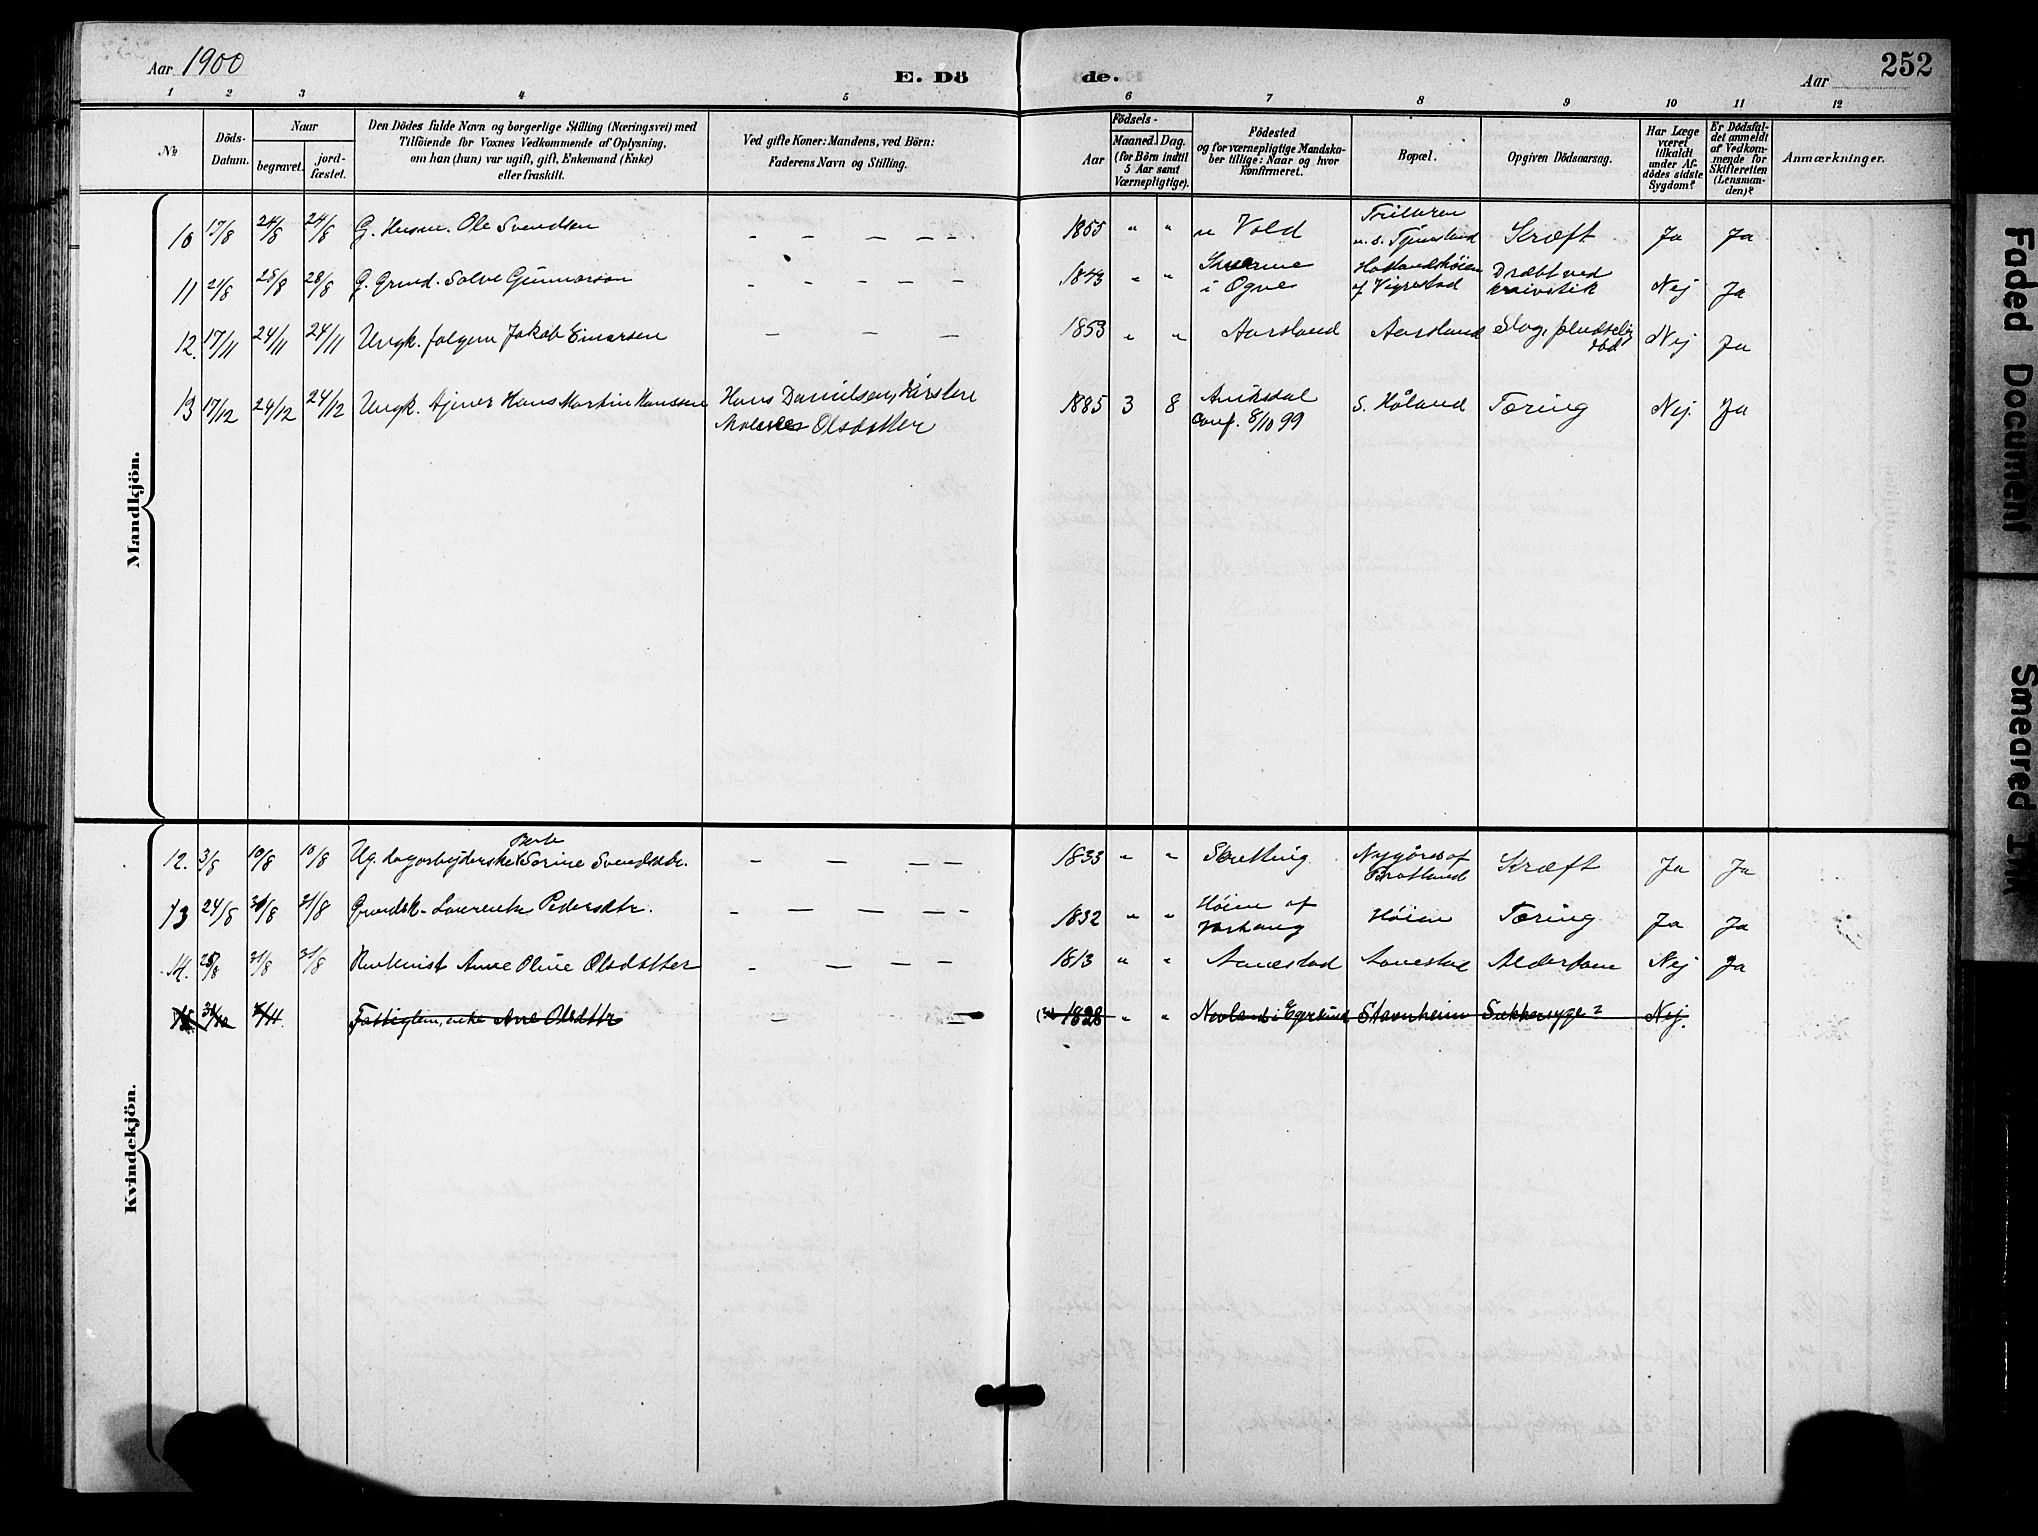 Aar 1900
E. Dö de.
Aar
252
1 2 3 4 5 6 7 8 9 10 11 12
No
Döds-Datum.
Naar
begravet.
jord-fæstet.
Den Dödes fulde Navn og borgerlige Stilling (Næringsvei) med
Tilföiende for Voxnes Vedkommende af Oplysning,
om han (hun) var ugift, gift, Enkemand (Enke)
eller fraskilt.
Ved gifte Koner: Mandens, ved Börn:
Faderens Navn og Stilling.
Födsels-
Aar
Maaned. Dag.
(for Börn indtil
5 Aar samt
Værnepligtige).
Födested
og for værnepligtige Mandska-
ber tillige: Naar og hvor
konfirmeret.
Bopæl.
Opgiven Dödsaarsag.
Har Læge
været
tilkaldt
under Af-
dödes sidste
Sygdom?
Er Dödsfal-
det anmeldt
af Vedkom-
mende for
Skifteretten
(Lensman-
den)?
Anmærkninger.
Mandkjön.
10 17/8 24/8 24/8 G. Husm. Ole Svendsen - - - - - 1855 " " Vold Kræft Ja Ja
11 21/8 28/8 28/8 G. Grmd. Salve Gunnarson - - - - - 1843 " " i Ogne af Vigrestad Dræbt ved knivstik Nej Ja
12. 17/11 24/11 24/11 Ungk. Jakob Einarsen - - - 1853 " " Aarsland Aarsland Slag, pludselig død Nej Ja
13 17/12 24/12 24/12 Ungk. Hans Martin Hanssen Hans Danielsen, Kirstene Olsdatter 1885 3 8 Aniksdal Conf. 8/10 99 S. Håland Tæring Nej. Ja
Kvindekjön.
12. 3/8 10/8 10/8 Ug. Berte Sorine Svendsdtr. - - - - 1833 " " Skretting Nygård af Bratland Kræft Ja Ja
13 24/8 31/8 31/8 Laurentse Pedersdtr. - - - - 1832 " " Høien af Varhaug Høien Tæring Ja Ja
14. 25/8 31/8 31/8 Anne Oline Olsdatter - - - - 1813 " " Aanestad Aanestad Alderdom Nej Ja
15 30/10 7/11. Fattiglem, enke Ane Olsdttr - - 1828 " " i Egersund Stavnheim Sukkersyge? Nej.
Faded Document
Smeared Ink